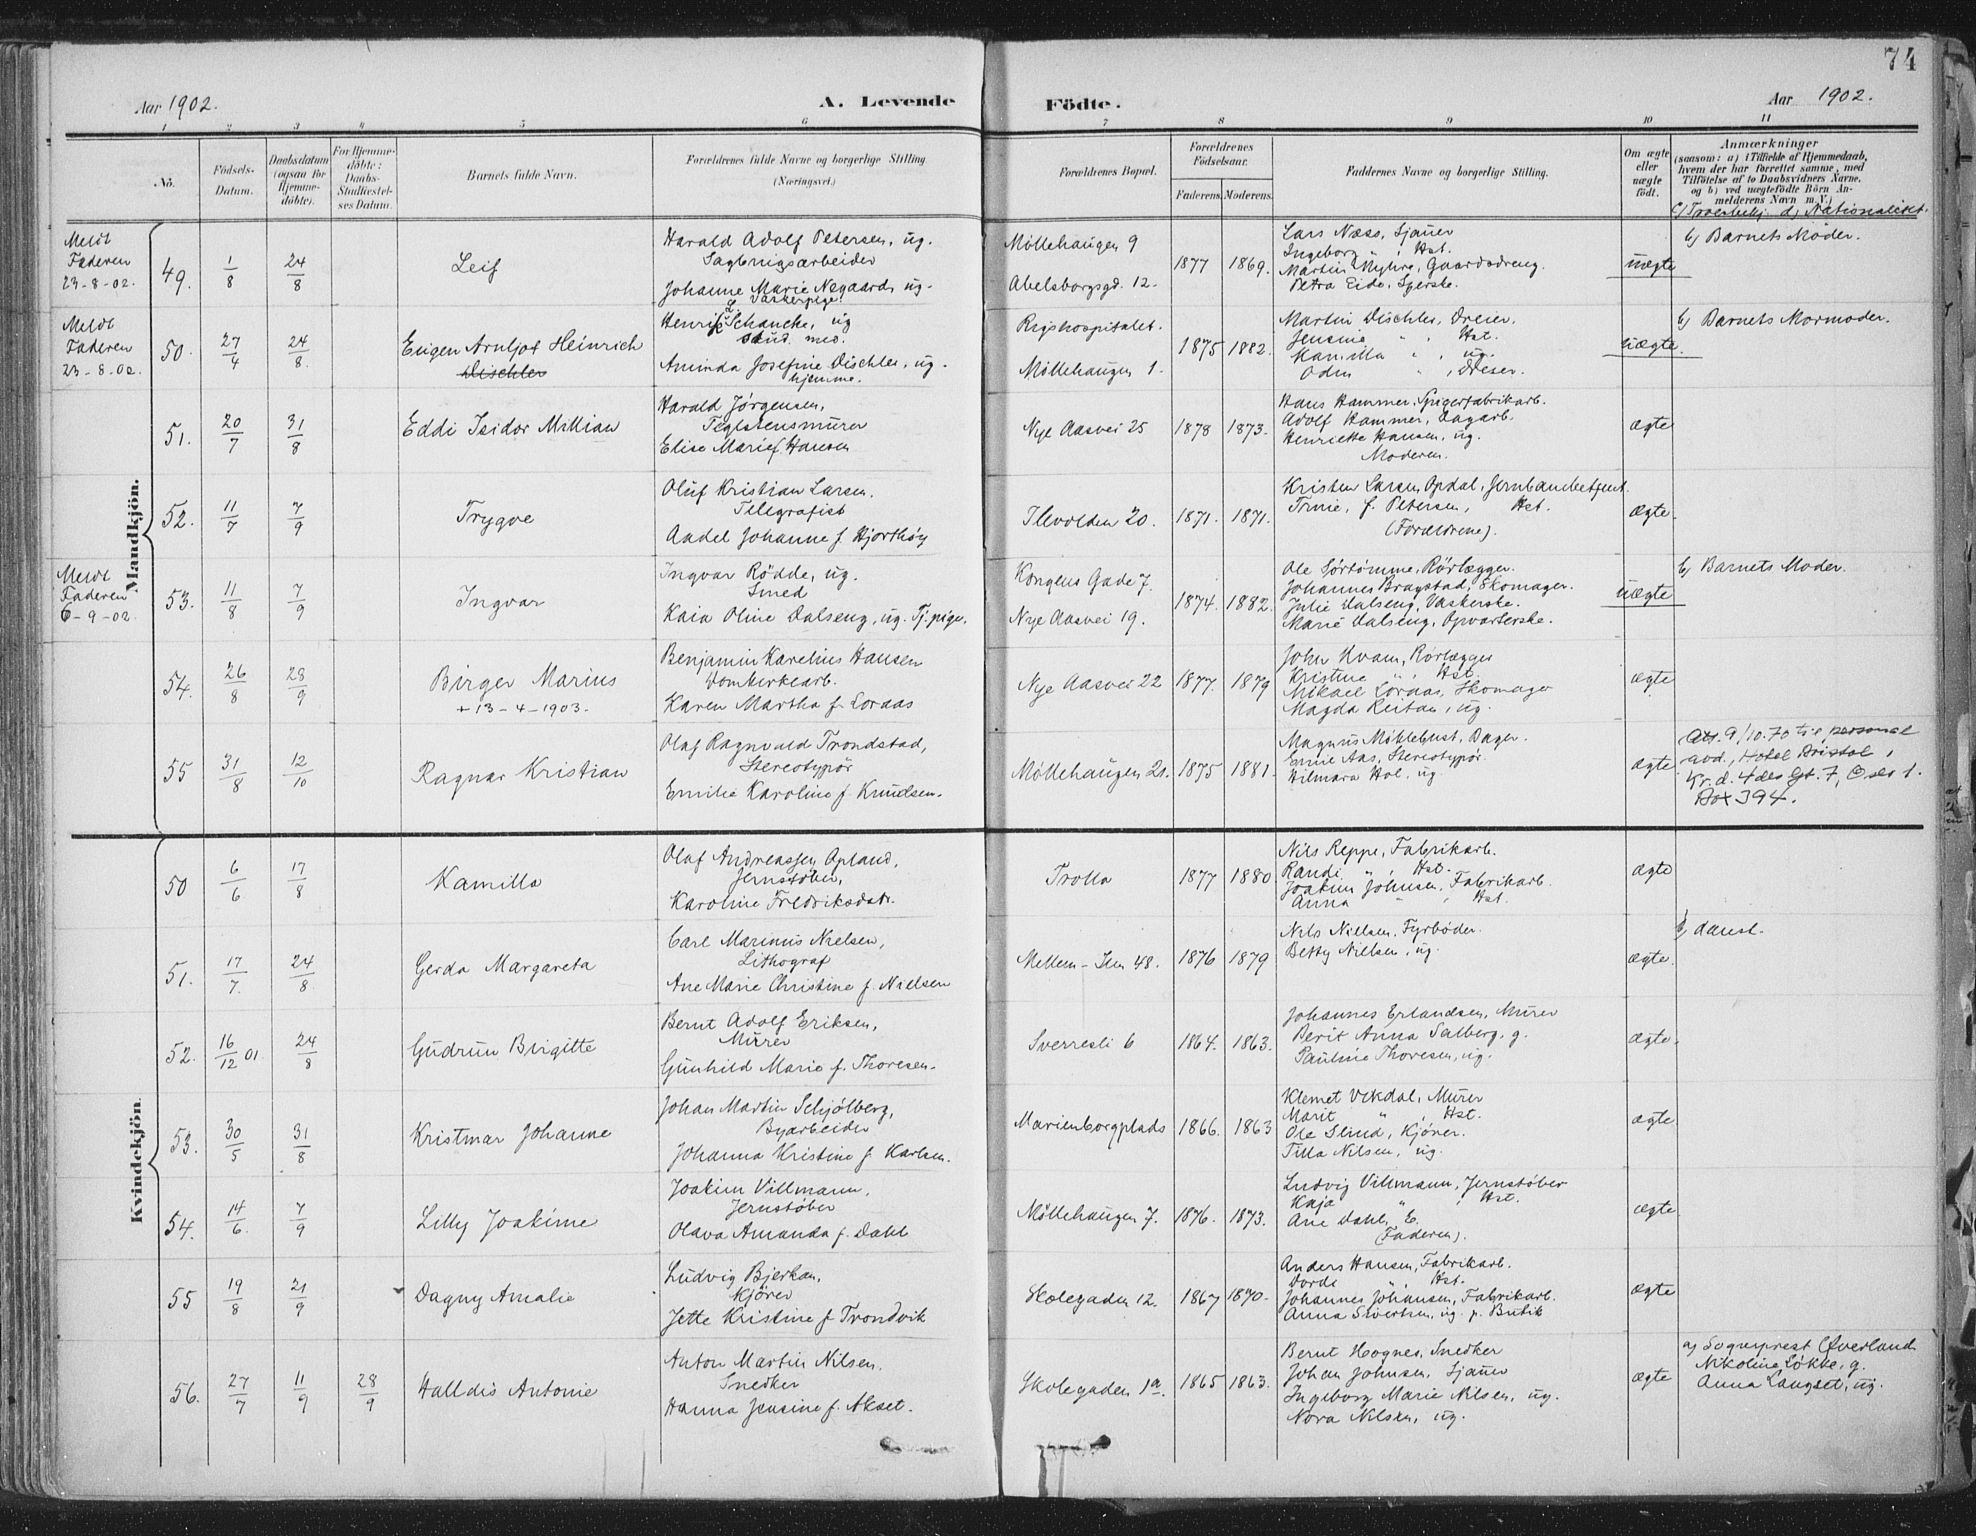 74
Aar 1902. A. Levende Födte. Aar 1902.
1 2 3 4 5 6 7 8 9 10 11
No.
Födsels-
Datum.
Daabsdatum
(ogsaa for
Hjemme-
döbte).
For Hjemme-
döbte:
Daabs-
Stadfæstel-
ses Datum.
Barnets fulde Navn.
Forældrenes fulde Navne og borgerlige Stilling
(Næringsvei.)
Forældrenes Bopæl.
Forældrenes
Födselsaar.
Faderens. Moderens.
Faddernes Navne og borgerlige Stilling.
Om ægte
eller
uægte
födt.
Anmærkninger
(saasom: a) i Tilfælde af Hjemmedaab,
hvem der har forrettet samme, med
Tilföielse af to Daabsvidners Navne,
og b) ved uægtefödte Börn An-
melderens Navn m. V.)
c) Troesbekj. d) Nationalitet.
Mandkjön.
Meldt
Faderen
23-8-02.
49. 1/8 24/8
Leif
Harald Adolf Petersen, ug.
Sagbrugsarbeider
Johanne Marie Negaard, ug.
Vaskerpige.
Møllehaugen 9
Abelsborggd. 12.
1877 1869.
Lars Næss, Sjauer
Ingeborg " , Hst.
Martin Myhre, Gaardsdreng.
Petra Eide, Syerske.
uægte
b) Barnets Moder.
Meldt
Faderen
23-8-02.
50. 27/4 24/8.
Eugen Arnljot Heinrich
Dischler
Henrik Schancke, ug
stud. med.
Aminda Josefine Dischler, ug.
hjemme.
Rigshospitalet.
Møllehaugen 1.
1875 1882.
Martin Dischler, Dreier.
Jensine " , Hst.
Kamilla " , ug.
Odin " , Dreier.
uægte.
b) Barnets Mormoder.
51. 20/7 31/8
Eddi Isidor Millian
Harald Jørgensen,
Teglstensmurer
Elise Marie f. Hansen
Nye Aasvei 25
1878 1873.
Hans Hammer, Spigerfabrikarb.
Adolf Hammer, Dagarb.
Henriette Hansen, ug.
Moderen.
ægte
52. 11/7 7/9
Trygve
Oluf Kristian Larsen.
Telegrafist
Aadel Johanne f. Hjorthøy
Ilevolden 20.
1871. 1871.
Kristen Larsen Opdal, Jernbanebetjent.
Trine, f. Petersen, Hst.
(Forældrene).
ægte
Meldt
Faderen
6-9-02
53. 11/8 7/9
Ingvar
Ingvar Rödde, ug.
Smed
Kaia Oline Dalseng, ug. Tj.pige.
Kongens Gade 7.
Nye Aasvei 19.
1874. 1882.
Ole Sörtömme, Rörlægger.
Johannes Bragstad, Skomager.
Julie Dalseng, Vaskerske.
Marie Dalseng, Opvarterske.
uægte
b) Barnets Moder.
54. 26/8 28/9
Birger Marius
+ 13-4-1903.
Benjamin Karelius Hansen
Domkirkearb.
Karen Martha f. Loraas
Nye Aasvei 22
1877. 1879
John Kvam, Rörlægger
Kristine " , Hst.
Mikael Loraas, Skomager
Magda Reitan, ug.
ægte
55 31/8 12/10
Ragnar Kristian
Olaf Ragnvald Trondstad,
Stereotypør
Emilie Karoline f. Knudsen.
Møllehaugen 21.
1875 1881.
Magnus Möklebust, Bager.
Enne Aas, Stereotypør.
Hilmara Hol, ug.
ægte
Att. 9/10.70 til personal
avd., Hotel Bristol,
Kr.d. 4des gt. 7, Oslo 1.
Box 394.
Kvindekjön.
50 6/6 17/8
Kamilla
Olaf Andreassen Opland,
Jernstøber,
Karoline Fredriksdtr.
Trolla
1877 1880
Nils Reppe, Fabrikarb.
Randi " , Hst.
Joakim Johnsen, Fabrikarb.
Anna " , Hst.
ægte
51. 17/7. 24/8
Gerda Margareta
Carl Marinus Nielsen,
Lithograf
Ane Marie Christine f. Nielsen
Mellem-Ilen 48.
1876 1879
Nils Nielsen, Fyrbøder.
Betty Nielsen, ug.
ægte.
d) dansk.
52. 16/12 01. 24/8
Gudrun Birgitte
Bernt Adolf Eriksen,
Murer
Gunhild Marie f. Thoresen.
Sverresli 6
1864. 1863.
Johannes Erlandsen, Murer
Berit Anna Salberg, g.
Pauline Thoresen, ug.
ægte.
53. 30/5 31/8
Kristmar Johanne
Johan Martin Schjølberg,
Byarbeider
Johanna Kristine f. Karlsen.
Marienborgplads
1866. 1863
Klemet Vikdal, Murer
Marit " , Hst.
Ole Slind, Kjörer.
Tilla Nilsen, ug.
ægte.
54. 14/6. 7/9
Lilly Joakime
Joakim Villmann,
Jernstøber
Olava Amanda f. Dahl
Møllehaugen 7.
1876. 1873.
Ludvig Villmann, Jernstøber
Kaja " , Hst.
Ane Dahl, E.
(Faderen).
ægte
55 19/8 21/9
Dagny Amalie
Ludvig Bjerkan,
Kjörer
Jette Kristine f. Trondvik
Skolegaden 12.
1867 1870.
Anders Hansen, Fabrikarb.
Dorde " , Hst.
Johannes Johansen, Fabrikarb.
Anna Sivertsen, ug. p. Butik
ægte
56. 27/7 11/9 28/9
Halldis Antonie
Anton Martin Nilsen.
Snedker
Hanna Jensine f. Akset.
Skolegaden 1a.
1865 1863.
Bernt Hognes, Snedker
Johan Johnsen, Sjauer
Ingeborg Marie Nilsen, ug.
Nora Nilsen, ug.
ægte
a) Sogneprest Øverland
Nikoline Løkke, g.
Anna Langset, ug.